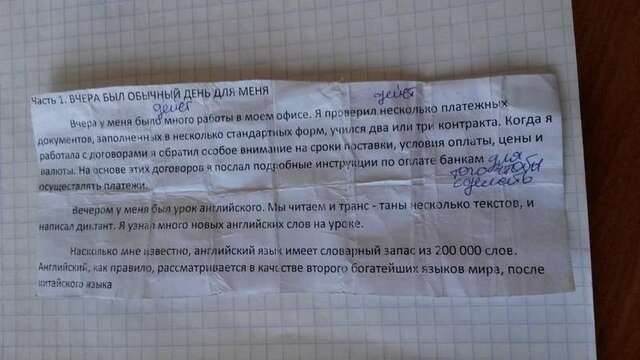 Часть 1. ВЧЕРА БЫЛ ОБЫЧНЫЙ ДЕНЬ ДЛЯ МЕНЯ
делег делег
Вчера у меня было много работы в моем офисе. Я проверил несколько платежных
документов, заполненных в несколько стандартных форм, учился два или три контракта. Когда я
работала с договорами я обратил особое внимание на сроки поставки, условия оплаты, цены и
валюты. На основе этих договоров я послал подробные инструкции по оплате банкам для
осуществлять платежи. того чтобы
сделать
Вечером у меня был урок английского. Мы читаем и транс - таны несколько текстов, и
написал диктант. Я узнал много новых английских слов на уроке.
Насколько мне известно, английский язык имеет словарный запас из 200 000 слов.
Английский, как правило, рассматривается в качестве второго богатейших языков мира, после
китайского языка